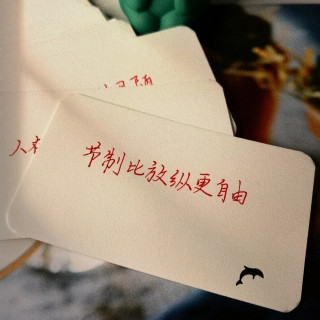 节制比放纵更自由